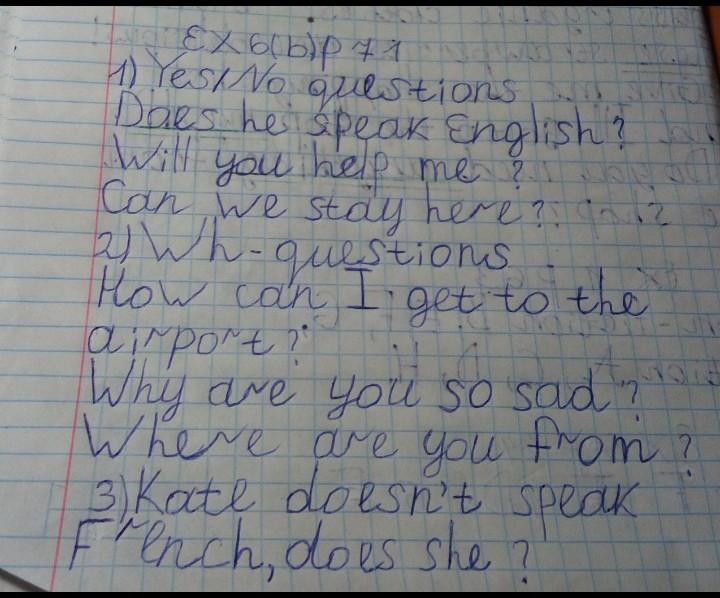 Ex 6(b) p 71
1) Yes/No questions
Does he speak English?
Will you help me ?
Can we stay here?
2) Wh-questions
How can I get to the
airport?
Why are you so sad?
Where are you from?
3) Kate doesn't speak
French, does she?